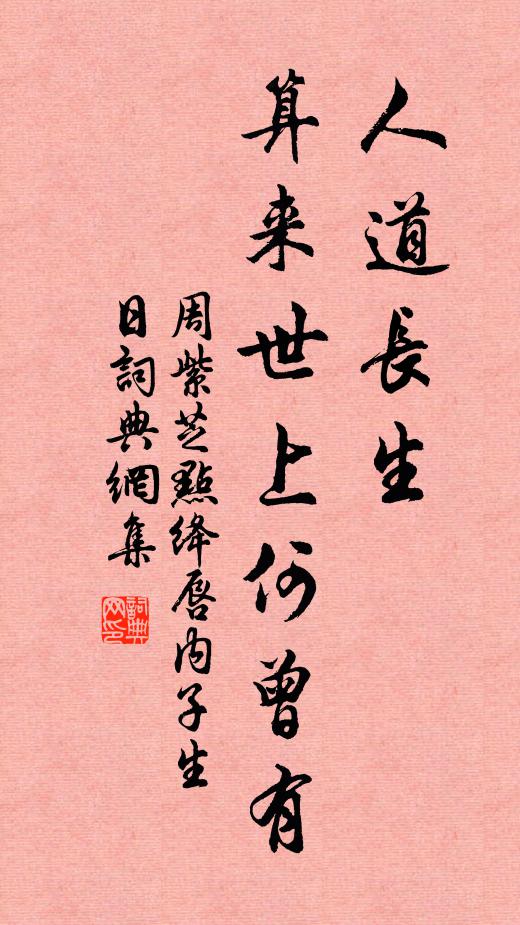 人道長生
算来世上何曾有
周紫芝點絳唇内子生
日詞典網集
詞典网印